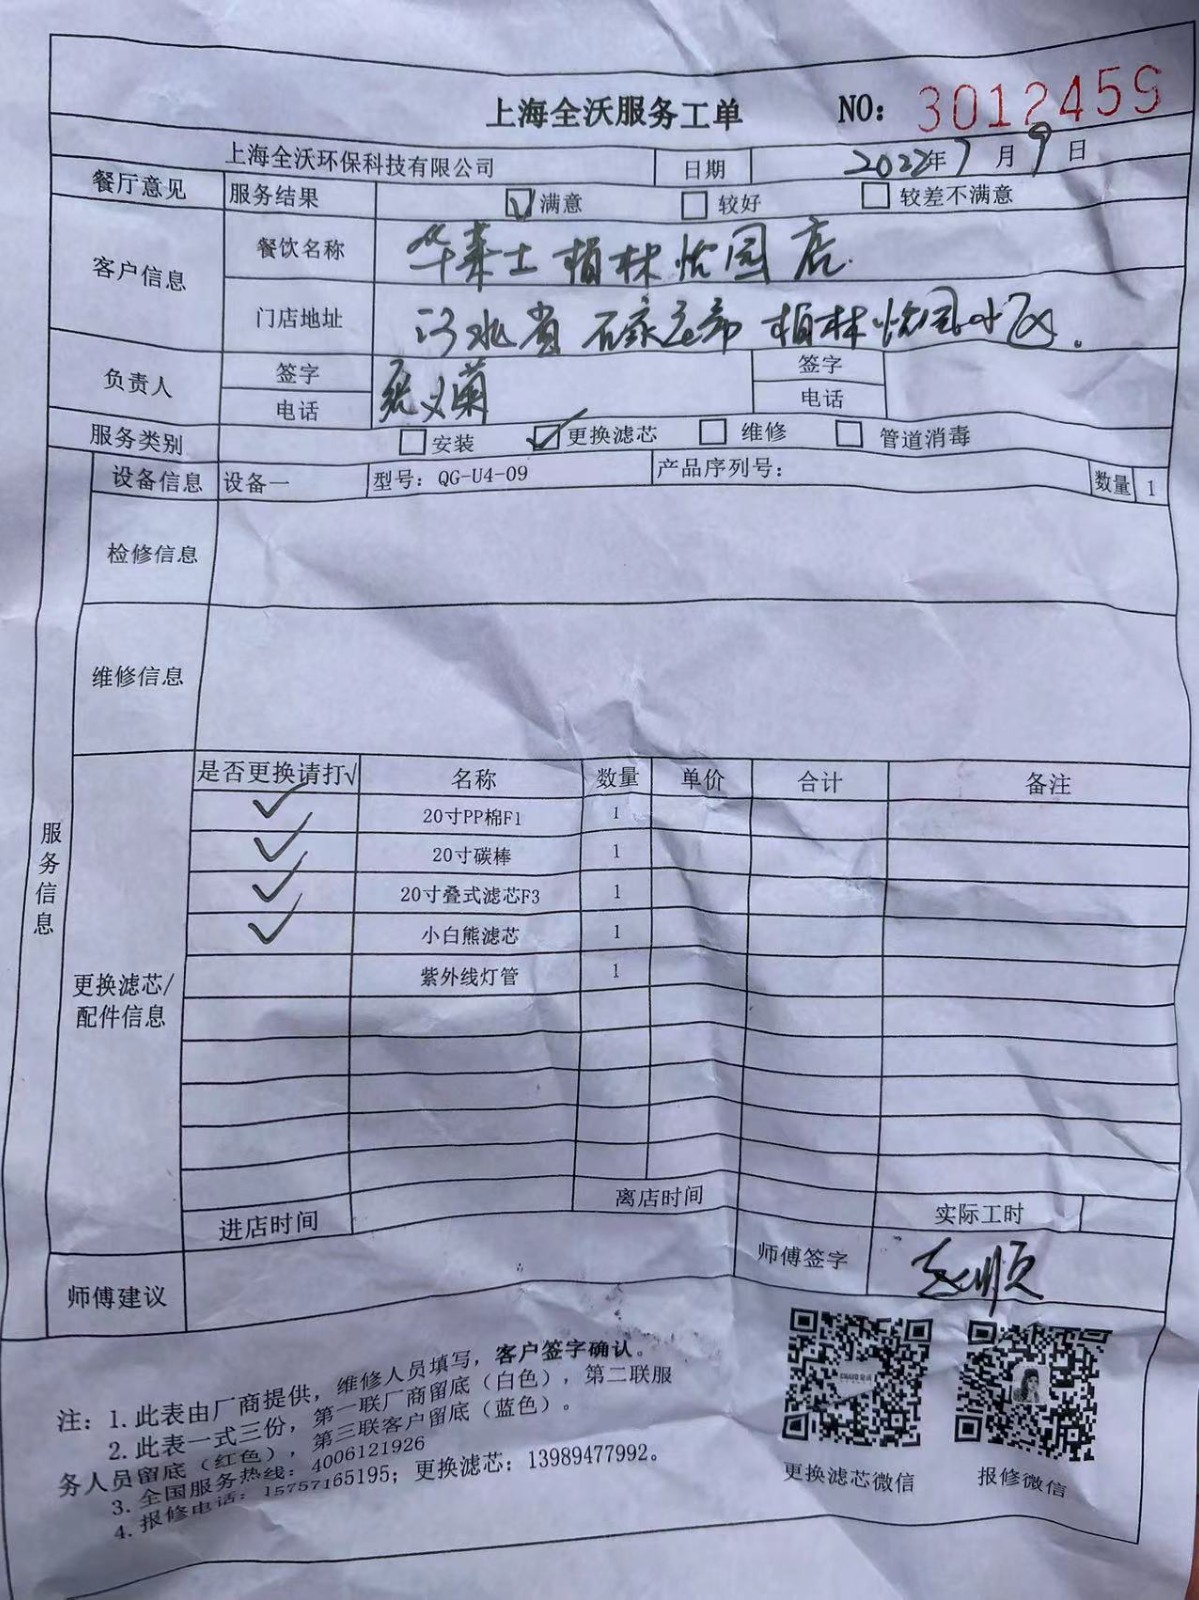 上海全沃服务工单 NO: 3012459
上海全沃环保科技有限公司 日期 2022年7月9日
餐厅意见 服务结果 ☑满意 □较好 □较差不满意
客户信息 餐饮名称 华莱士柏林怡园店.
门店地址 河北省石家庄市柏林怡园小区.
负责人 签字 签字
电话 电话
服务类别 □安装 ☑更换滤芯 □维修 □管道消毒
设备信息 设备一 型号: QG-U4-09 产品序列号: 数量 1
检修信息
维修信息
服务信息
是否更换请打√ 名称 数量 单价 合计 备注
✓ 20寸PP棉F1 1
✓ 20寸碳棒 1
✓ 20寸叠式滤芯F3 1
✓ 小白熊滤芯 1
紫外线灯管 1
更换滤芯/
配件信息
进店时间 离店时间 实际工时
师傅建议 师傅签字 赵顺
注: 1. 此表由厂商提供, 维修人员填写, 客户签字确认。
2. 此表一式三份, 第一联厂商留底(白色), 第二联服
务人员留底(红色), 第三联客户留底(蓝色)。
3. 全国服务热线: 4006121926
4. 报修电话: 15757165195; 更换滤芯: 13989477992。
更换滤芯微信 报修微信